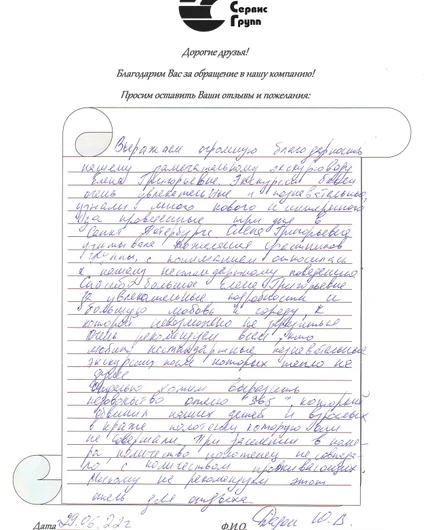 Сервис
Групп
Дорогие друзья!
Благодарим Вас за обращение в нашу компанию!
Просим оставить Ваши отзывы и пожелания:
Выражаем огромную благодарность
нашему замечательному экскурсоводу
Елена Григорьевне. Экскурсии были
очень увлекательные и познавательные,
узнали много нового и
За проведенные три дня в
Санкт Петербурге Елена Григорьевна
учитывала пожелания участников
группы, с пониманием относилась
к нашему нестандартному поведению
Спасибо большое Елене Григорьевне
за увлекательные подробности и
большую любовь к городу, к
которой невозможно не
Очень рекомендуем всем, кто
любит нестандартные познавательные
экскурсии после которых тепло на
душе
Отдельно хотим выразить
недовольство отелю "365", который
обвинил наших детей и взрослых
в краже полотенец которую они
не совершали. При заселении в номе-
ра количество полотенец не совпада-
ло с количеством проживающих.
Никому не рекомендуем этот
отель для отдыха
Дата 29.06.22г Ф.И.О. Ю.В.